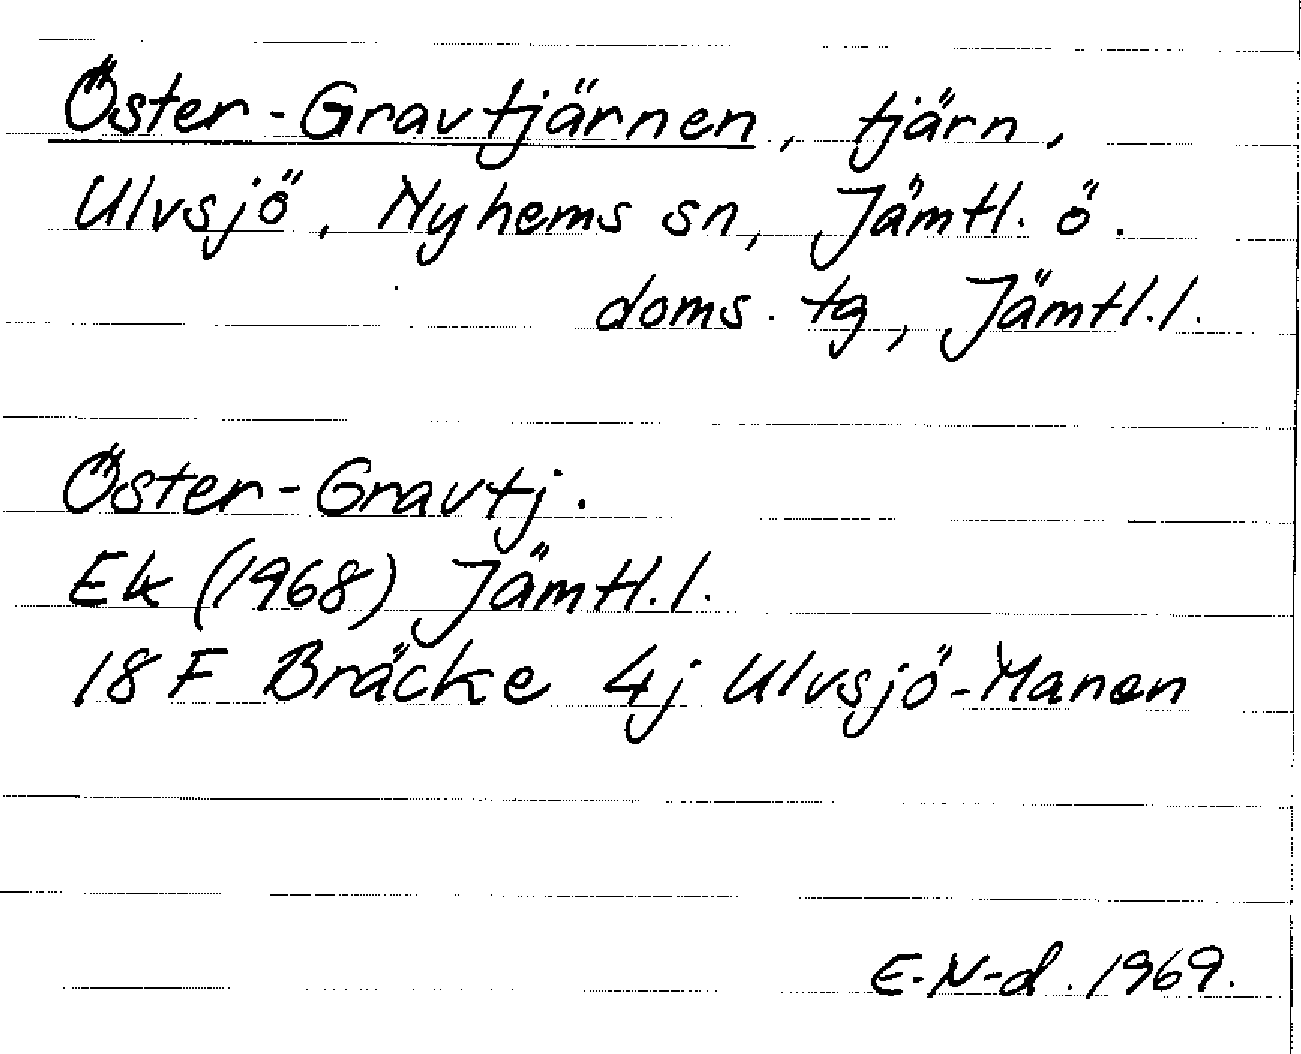 Öster-Gravtjärnen, tjärn,
Ulvsjö, Nyhems sn, Jämtl. ö.
doms. tg, Jämtl.l.
Öster-Gravtj.
Ek (1968) Jämtl.l.
18 F Bräcke 4j Ulvsjö-Manen
E.N-d. 1969.